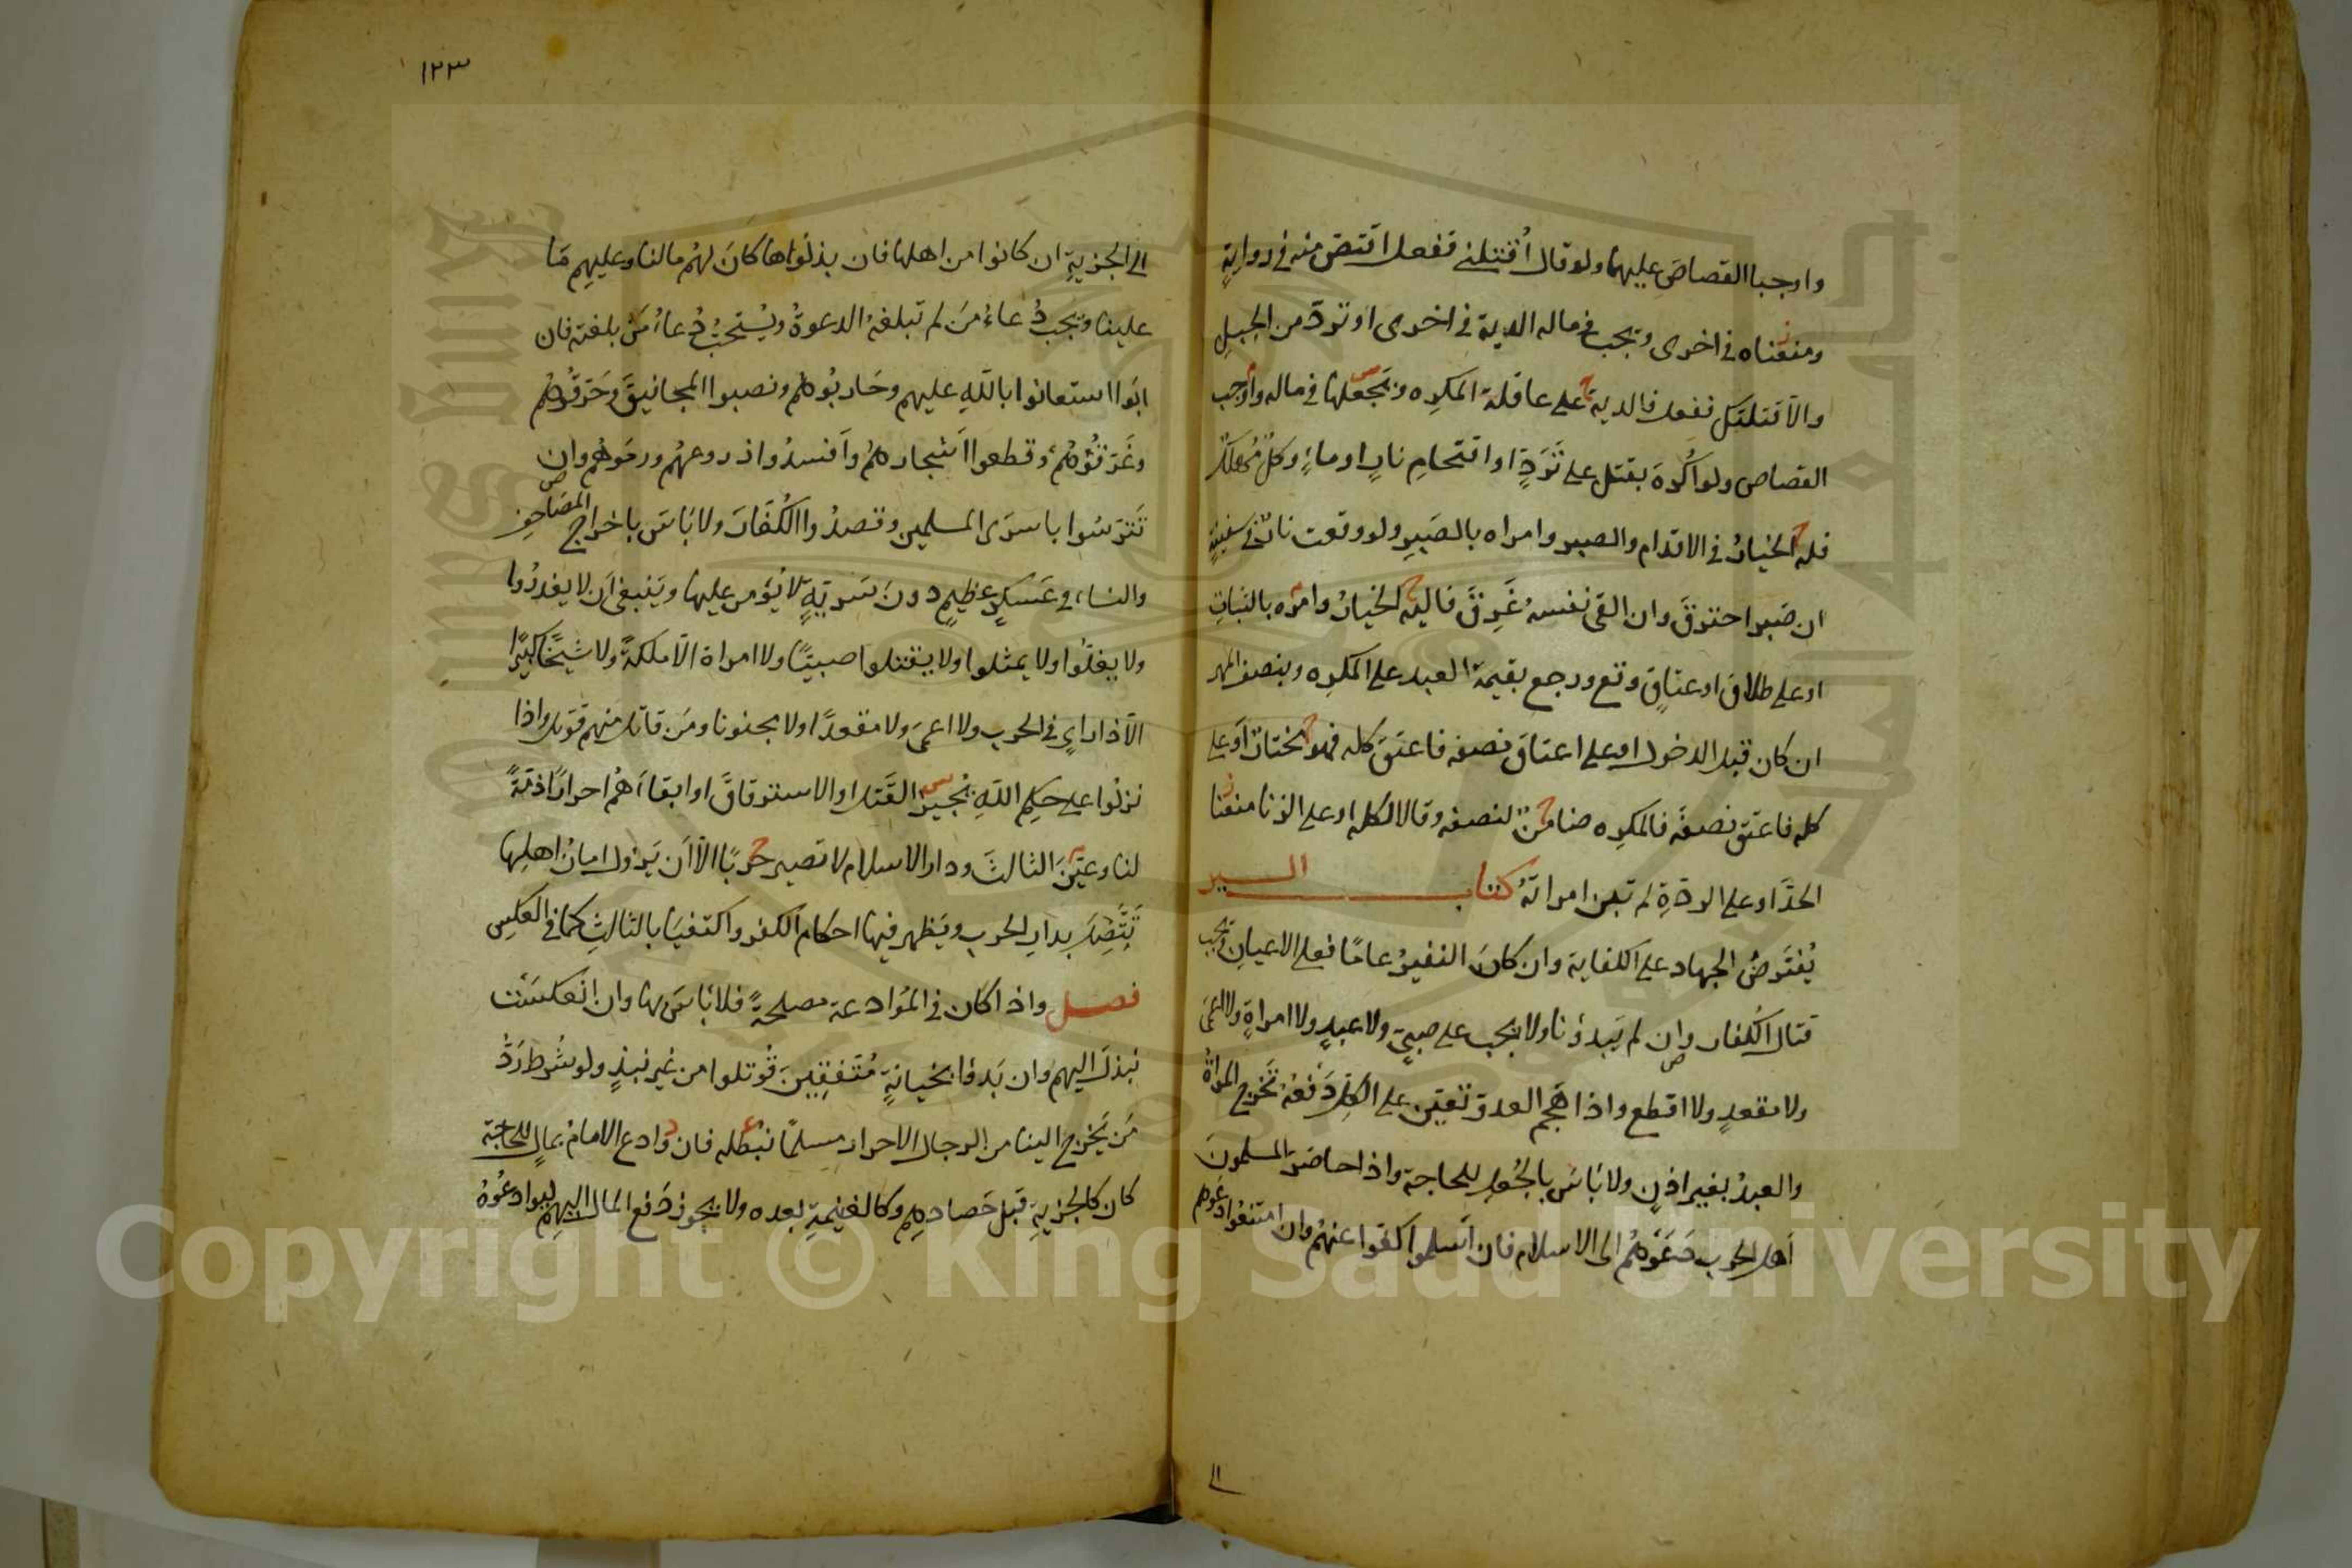 واوجبا القصاصَ عليهما ولو قال اُقتلني ففعل اقتص منه في روايةٍ
ومنعناه في اخرى وتجب في ماله الدية في اخرى او تردّ من الجبلِ
والّا قتلتك ففعل فالدية على عاقلة المكرِه ونجعلها في ماله واوجب
القصاص ولو اُكرهَ بقتل على تَرَدٍّ او اقتحامِ نارٍ او ماءٍ وكلٌّ مُهلكٌ
فله الخيارُ في الاقدام والصبر وامراه بالصَبرِ ولو وقعت نارٌ في سفينةٍ
ان صَبر احترقَ وان القى نفسهُ غَرِقَ فاليه الخيارُ وامره بالثباتِ
او على طلاق او عتاقٍ وقع ورجع بقيمة العبد على المكرِه وبنصف المهر
ان كان قبل الدخول او على اعتاق نصفه فاعتقَ كله فهو مختارٌ او على
كله فاعتق نصفَه فالمكرِه ضامنٌ لنصفه وقالا لكله او على الزنا منعنا
الحدَّ او على الردّةِ لم تبن امراتهُ كتاب السير
يُفترضُ الجهاد على الكفاية وان كانَ النفيرُ عامًا فعلى الاعيانِ فيجب
قتال الكُفار وان لم يَبدؤنا ولا يجب على صبيٍّ ولا عبدٍ ولا امراةٍ ولا اعمىَ
ولا مقعدٍ ولا اقطع واذا هَجم العدوّ تعيّن على الكلِّ دَفعُهُ تَخرج المراةُ
والعبدُ بغير اذنٍ ولا بَاسَ بالجُعلِ للحاجة واذا حاصَر المسلمونَ
اَهل الحرب دَعَوْهُم الى الاسلام فان اَسلموا كفّوا عنهُم وان امتنعُوا دعَوهم
الى
١٢٣
الى الجزيةِ ان كانوا من اهلها فان بذلُوها كانَ لهُم مالنا وعليهِم مَا
علينا ويجب دُعاءُ مَن لم تبلغهُ الدعوةُ ويُستحَبُّ دُعاءُ مَن بلغته فان
ابَوا استعانوا باللّهِ عليهم وحَاربُوهُم ونصبوا المجانيقَ وحَرّقُوهُم
وغَرّقُوهُم وقطعوا اَشجارهُم واَفسدُوا زروعهُم ورمَوهُم وان
تَترّسُوا باسرَى المسلمين وقصدُوا الكُفّارَ ولا بَاسَ باخراج المصَاحِفِ
والنساء في عَسكرٍ عظيمٍ دونَ سَريّةٍ لا يُؤمن عليها ويَنبغي اَن لا يغدرُوا
ولا يغلّوا ولا يمثلوا ولا يقتلوا صبيًّا ولا امراة الّا ملكةً ولا شيخًا كبيرًا
الّا ذا رايٍ في الحرب ولا اعمىَ ولا مقعدًا ولا مجنونا ومَن قاتل منهم قوتل واذا
نزلُوا على حكمِ اللّهِ نُجيز القَتل او الاسترقاقَ او ابقاءَهُم احرارًا ذمّةً
لنا وعيّنَ الثالثَ ودار الاسلام لا تصير حربًا الّا اَن يَزولَ امانُ اهلِها
تَتَّصِلَ بدارِ الحربِ ويَظهر فيها احكام الكفر واكتفيَا بالثالثِ كما في العكسِ
فصل واذا كان في المُوادعة مصلحةٌ فلا بَاسَ بها وان انعكسَت
نبذَ اليهم وان بَدؤا بخيانةٍ مُتّفِقِينَ قُوتلوا من غير نبذٍ ولو شُرط رَدُّ
مَن يَخرج الينا من الرجال الاحرار مسلمًا نبُطله فان وَادع الامامُ بمالٍ للحاجة
كان كالجزيةِ قبل حَصارهم وكالغنيمةِ بعده ولا يجوز دَفع المال اليهِم ليوادعُوهُ